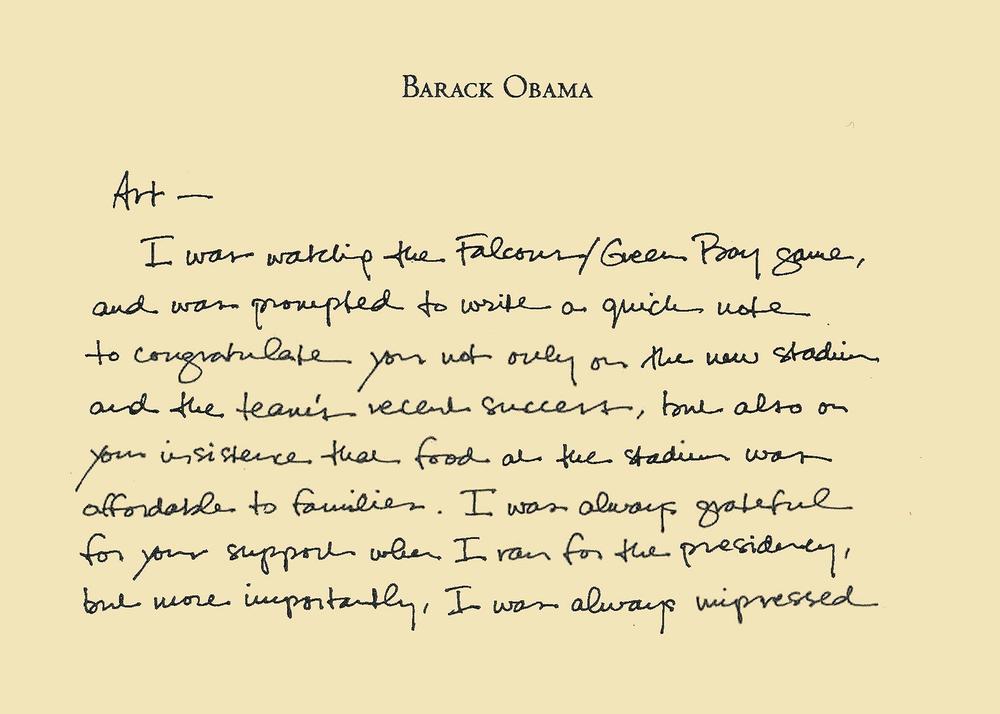 BARACK OBAMA
Art —
I was watching the Falcons/Green Bay game,
and was prompted to write a quick note
to congratulate you not only on the new stadium
and the team's recent success, but also on
your insistence that food at the stadium was
affordable to families. I was always grateful
for your support when I ran for the presidency,
but more importantly, I was always impressed